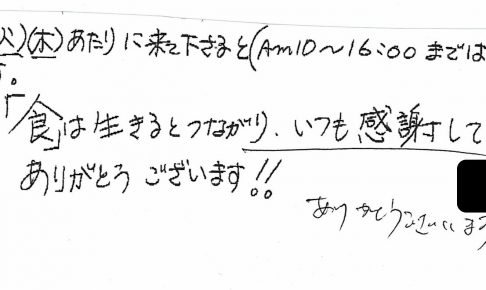 火)(木)あたりに来て下さると(Am10〜16:00までは
す。
「食」は生きるとつながり、いつも感謝して
ありがとうございます!!
ありがとうございます